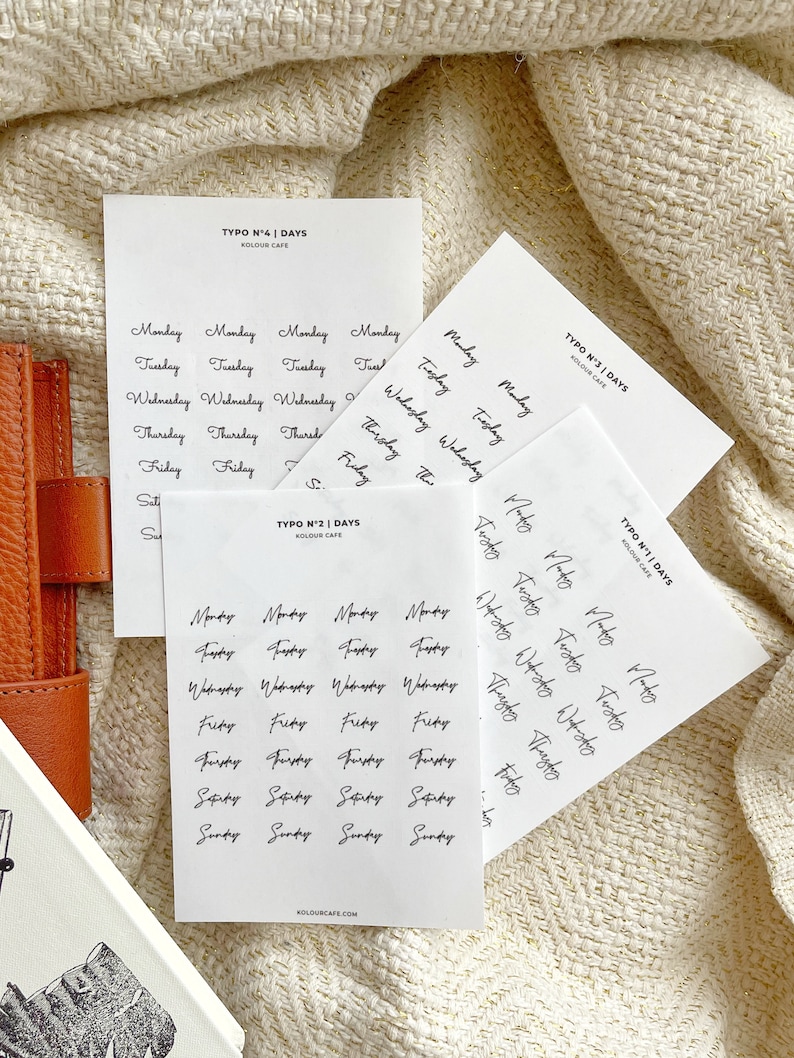 TYPO N°4 | DAYS
KOLOUR CAFE
Monday Monday Monday Monday
Tuesday Tuesday Tuesday Tuesday
Wednesday Wednesday Wednesday
Thursday Thursday Thursday
Friday Friday
TYPO N°3 | DAYS
KOLOUR CAFE
Monday Monday
Tuesday Tuesday
Wednesday Wednesday
Thursday
Friday
TYPO N°2 | DAYS
KOLOUR CAFE
Monday Monday Monday Monday
Tuesday Tuesday Tuesday Tuesday
Wednesday Wednesday Wednesday Wednesday
Friday Friday Friday Friday
Thursday Thursday Thursday Thursday
Saturday Saturday Saturday Saturday
Sunday Sunday Sunday Sunday
KOLOURCAFE.COM
TYPO N°1 | DAYS
KOLOUR CAFE
Monday Monday Monday Monday
Tuesday Tuesday Tuesday Tuesday
Wednesday Wednesday Wednesday
Thursday Thursday
Friday